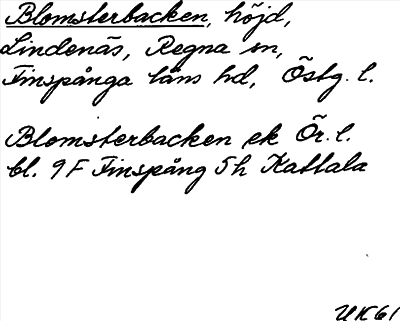 Blomsterbacken, höjd,
Lindenäs, Regna sn,
Finspånga läns hd, Östg. l.
Blomsterbacken ek Ör. l.
bl. 9 F Finspång 5 h Kattala
UK61